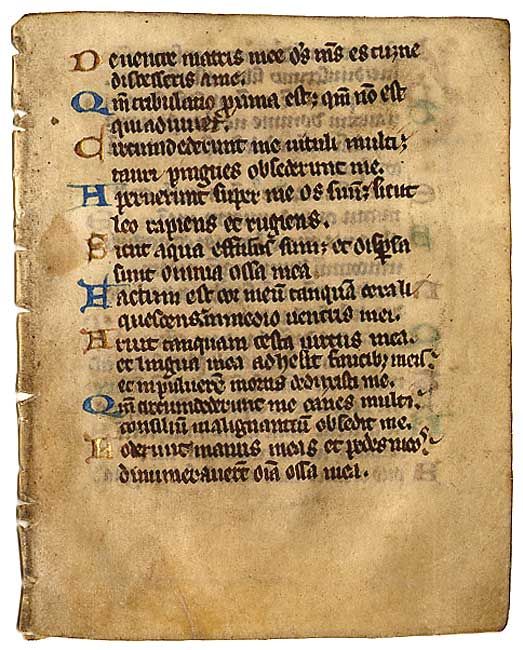 De ventre matris mee ds ms es tu; ne
discesseris a me.
Qm tribulatio proxima est; qm no est
qui adiuvet.
Circumdederunt me vituli multi;
tauri pingues obsederunt me.
Aperuerunt super me os suu; sicut
leo rapiens et rugiens.
Sicut aqua effusus sum; et dispsa
sunt omnia ossa mea.
Factum est cor meu tanqua cera li
quescens in medio ventris mei.
Aruit tanquam testa virtus mea
et lingua mea adhesit faucib; meis
et in pulvere mortis deduxisti me.
Qm circumdederunt me canes multi
consiliu malignantiu obsedit me.
Foderunt manus meas et pedes meos
dinumeraverut oia ossa mea.